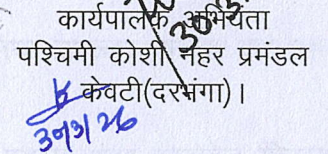 कार्यपालक अभियंता
पश्चिमी कोशी नहर प्रमंडल
केवटी(दरभंगा)।
30/3/26